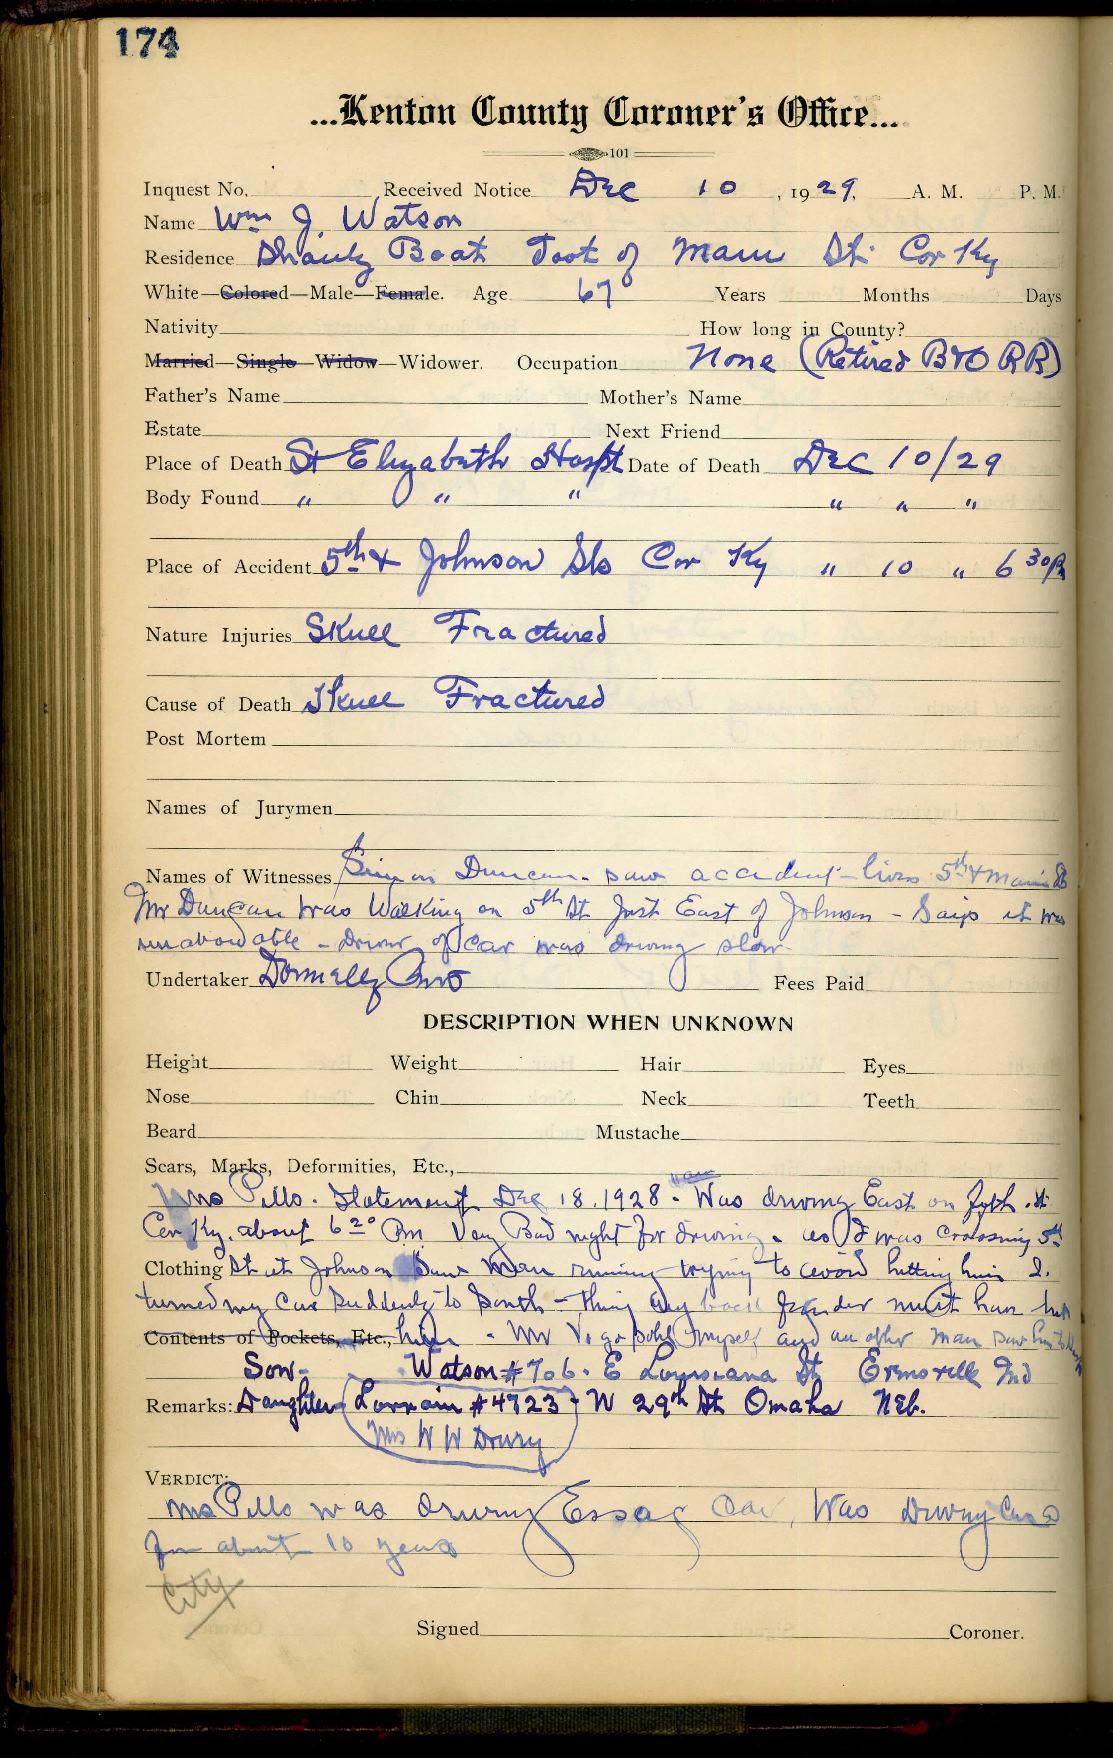 174
...Kenton County Coroner's Office...
101
Inquest No. Received Notice Dec 10, 1929, A. M. P. M.
Name Wm J. Watson
Residence Shanty Boat Foot of Main St. Cov Ky
White—Colored—Male—Female. Age 67 Years Months Days
Nativity How long in County?
Married—Single—Widow—Widower. Occupation None (Retired B&O RR)
Father's Name Mother's Name
Estate Next Friend
Place of Death St Elizabeth Hospt Date of Death Dec 10/29
Body Found " " " " " "
Place of Accident 5th & Johnson Sts Cov Ky " 10 " 6 30 Pm
Nature Injuries Skull Fractured
Cause of Death Skull Fractured
Post Mortem
Names of Jurymen
Names of Witnesses Duncan - saw accident - lives 5th & Main St
Mr Duncan was Walking on 5th St Just East of Johnson - Says it was
unavoidable - Driver of car was driving slow
Undertaker Donnelly Bros Fees Paid
DESCRIPTION WHEN UNKNOWN
Height Weight Hair Eyes
Nose Chin Neck Teeth
Beard Mustache
Scars, Marks, Deformities, Etc.,
Mrs Statement Dec 18. 1928 - Was driving East on Fifth St
Cov Ky. about 6 20 P.M. Very Bad night for driving - as I was crossing 5th
Clothing St at Johnson Saw Man running trying to avoid hitting him I
turned my car suddenly to South - thing my back fender must have hit
Contents of Pockets, Etc., him - Mr myself and an other man
Son - Watson #706 - E Louisiana St Ind
Remarks: Daughter - Lorrain #4723 - W 29th St Omaha Neb.
Mrs W W Drury
VERDICT:
Mrs was driving Essex Car, Was Driving Cars
for about 10 years
City
Signed Coroner.